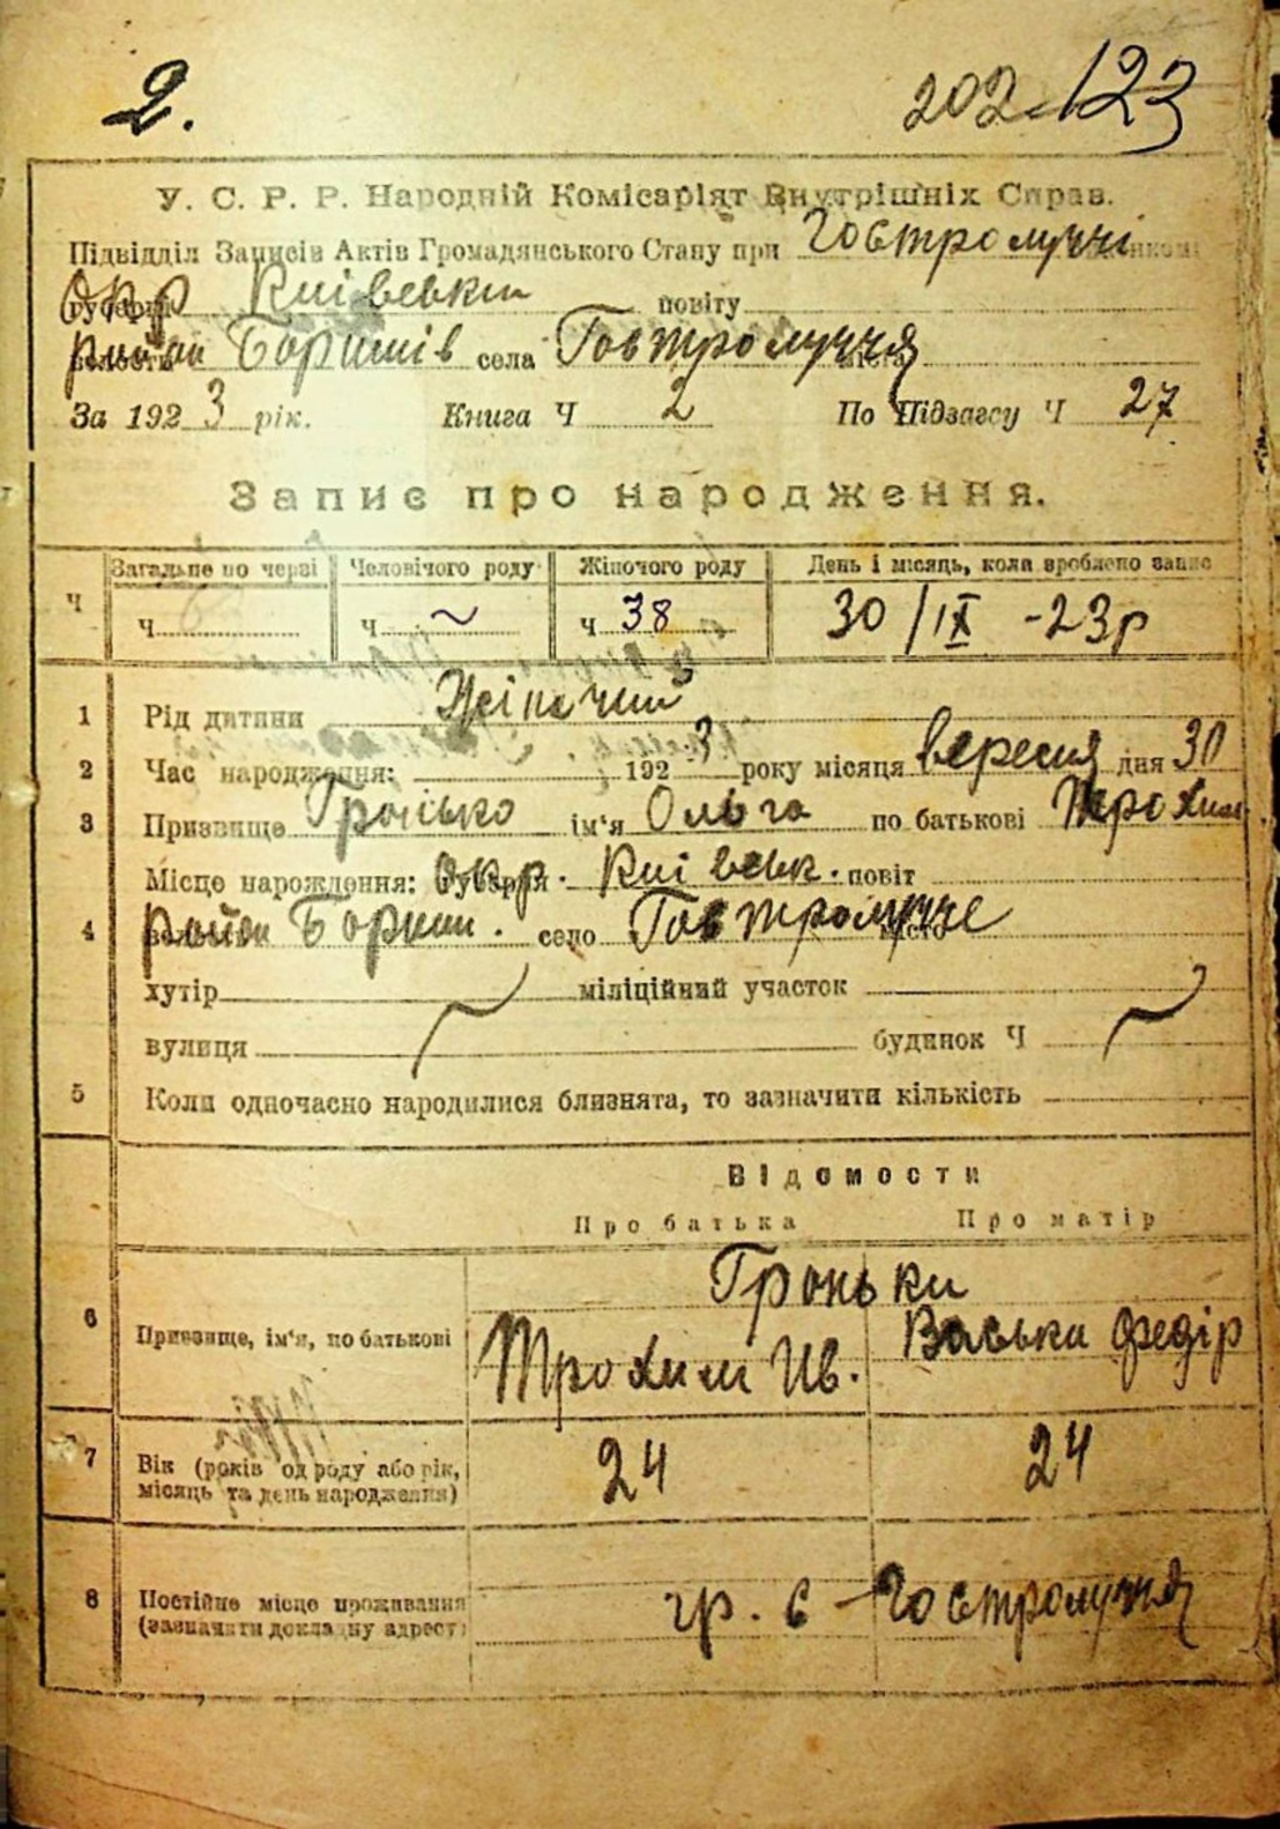 2. 202 123
У. С. Р. Р. Народній Комісаріят Внутрішніх Справ.
Підвідділ Записів Актів Громадянського Стану при Гостромуччі
Окр Київськи повіту
район Боришів села Гостромуччя
За 1923 рік. Книга Ч 2 По Підзагсу Ч 27
Запис про народження.
Загальне по черзі Человічого роду Жіночого роду День і місяць, коли зроблено запис
Ч Ч Ч Ч 38 30/IX -23р
1 Рід дитини Жіночий
2 Час народження: 1923 року місяця вересня дня 30
3 Призвище Гронько ім'я Ольга по батькові Трохим
Місце нарождення: окр. Київськ. повіт
4 район Бориш. село Гостромучче
хутір міліційний участок
вулиця будинок Ч
5 Коли одночасно народилися близнята, то зазначити кількість
Відомости
Про батька Про матір
Гроньки
6 Призвище, ім'я, по батькові Трохим Ив. Васька Федір
7 Вік (років од роду або рік, місяць та день народження) 24 24
8 Постійне місце проживання (зазначити докладну адресу) гр. с Гостромуччя